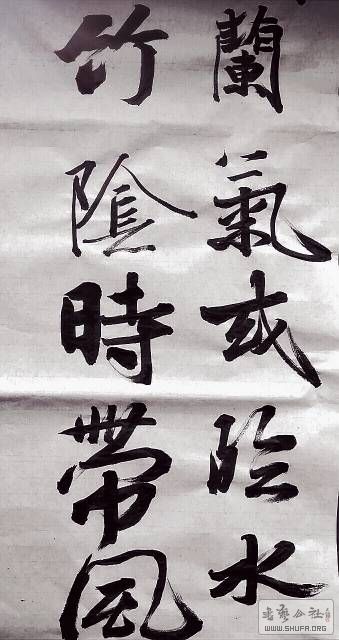 蘭氣或臨水
竹陰時帶風
WWW.SHUFA.ORG